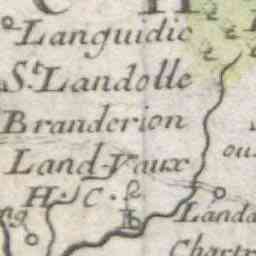 Languidic
S.t Landolle
Branderion
Land-Vaux
H. C.
Landa
Chartr